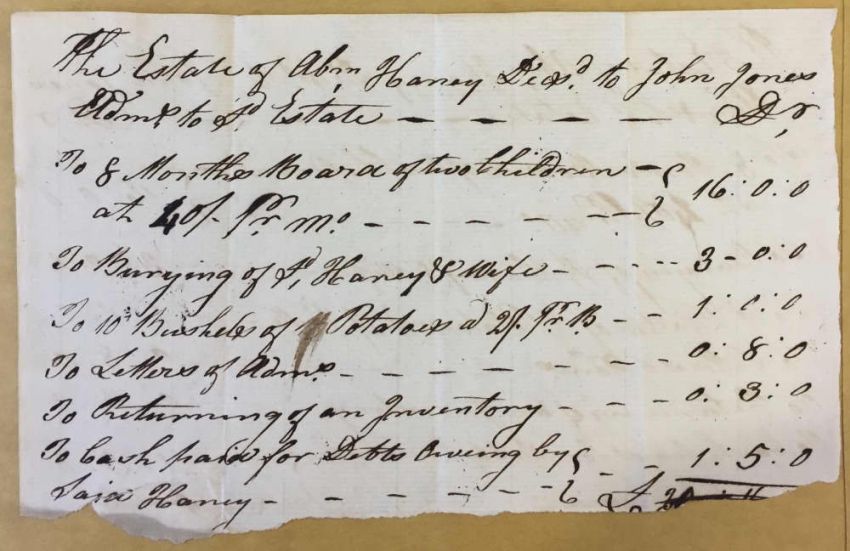 The Estate of Abm Haney Decsd. to John Jones
Admr. to sd Estate — — — — — Dr
To 8 Months Board of two Children — } 16:0:0
at 40/- Pr. Mo. — — — — — — }
To Burying of sd, Haney & Wife — — — -- 3-0:0
To 10 Bushels of Potatoes a 2/. Pr. B — — 1:0:0
To Letters of Adms. — — — — — — — 0:8:0
To Returning of an Inventory — — — — 0:3:0
To Cash paid for Debts Oweing by } — — 1:5:0
Said Haney — — — — — — — } £